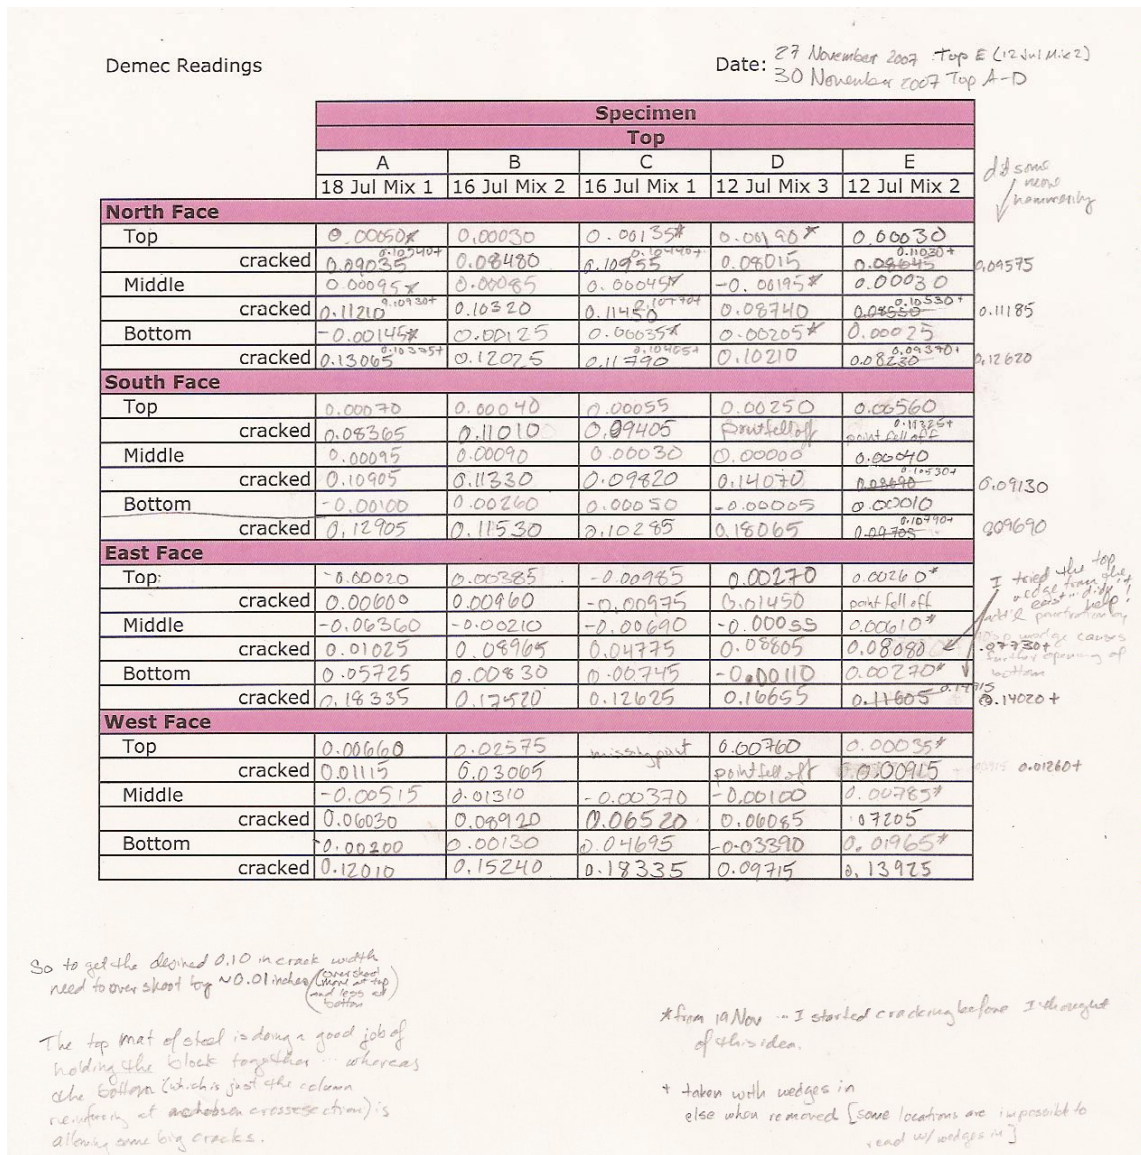 Demec Readings
Date: 27 November 2007 Top E (12 Jul Mix 2)
30 November 2007 Top A-D
Specimen
Top
A B C D E
18 Jul Mix 1 16 Jul Mix 2 16 Jul Mix 1 12 Jul Mix 3 12 Jul Mix 2
did some
more
hammering
North Face
Top 0.00050* 0.00030 0.00135* 0.00190* 0.00030
cracked 0.09035 0.10540+ 0.08480 0.10955 0.10440+ 0.08015 0.08645 0.11030+ 0.09575
Middle 0.00095* 0.00085 0.00045* -0.00195* 0.00030
cracked 0.11210 0.10930+ 0.10320 0.11450 0.10770+ 0.08740 0.08550 0.10530+ 0.11185
Bottom -0.00145* 0.00125 0.00035* 0.00205* 0.00025
cracked 0.13065 0.10335+ 0.12025 0.11790 0.10465+ 0.10210 0.08230 0.09390+ 0.12620
South Face
Top 0.00070 0.00040 0.00055 0.00250 0.00560
cracked 0.08365 0.11010 0.09405 point fell off point fell off 0.11325+
Middle 0.00095 0.00090 0.00030 0.00000 0.00040
cracked 0.10905 0.11330 0.09820 0.14070 0.08690 0.10530+ 0.09130
Bottom -0.00100 0.00260 0.00050 -0.00005 0.00010
cracked 0.12905 0.11530 0.10285 0.18065 0.09705 0.10790+ 0.09690
East Face
Top -0.00020 0.00385 -0.00985 0.00270 0.00260*
cracked 0.00600 0.00960 -0.00975 0.01450 point fell off
I tried the top
wedge from the
east ... didn't
help!
until penetration by
top wedge causes
further opening of
bottom
Middle -0.06360 -0.00210 -0.00690 -0.00055 0.00610*
cracked 0.01025 0.08965 0.04775 0.08805 0.08080 .07730+
Bottom 0.05725 0.00830 0.00745 -0.00110 0.00270*
cracked 0.18335 0.17520 0.12625 0.16655 0.11605 0.14715 0.14020+
West Face
Top 0.00660 0.02575 missing point 0.00760 0.00035*
cracked 0.01115 0.03065 point fell off 0.00915 0.01260+
Middle -0.00515 0.01310 -0.00370 -0.00100 0.00785*
cracked 0.06030 0.08920 0.06520 0.06085 07205
Bottom -0.00200 0.00130 0.04695 -0.03390 0.01965*
cracked 0.12010 0.15240 0.18335 0.09715 0.13925
So to get the desired 0.10 in crack width
need to over shoot by ~0.01 inches (overshoot
more at top
and less at
bottom)
The top mat of steel is doing a good job of
holding the block together ... whereas
the bottom (which is just the column
reinforcing at crosssection) is
allowing some big cracks.
*from 19 Nov ... I started cracking before I thought
of this idea.
+ taken with wedges in
else when removed [some locations are impossible to
read w/ wedges in]